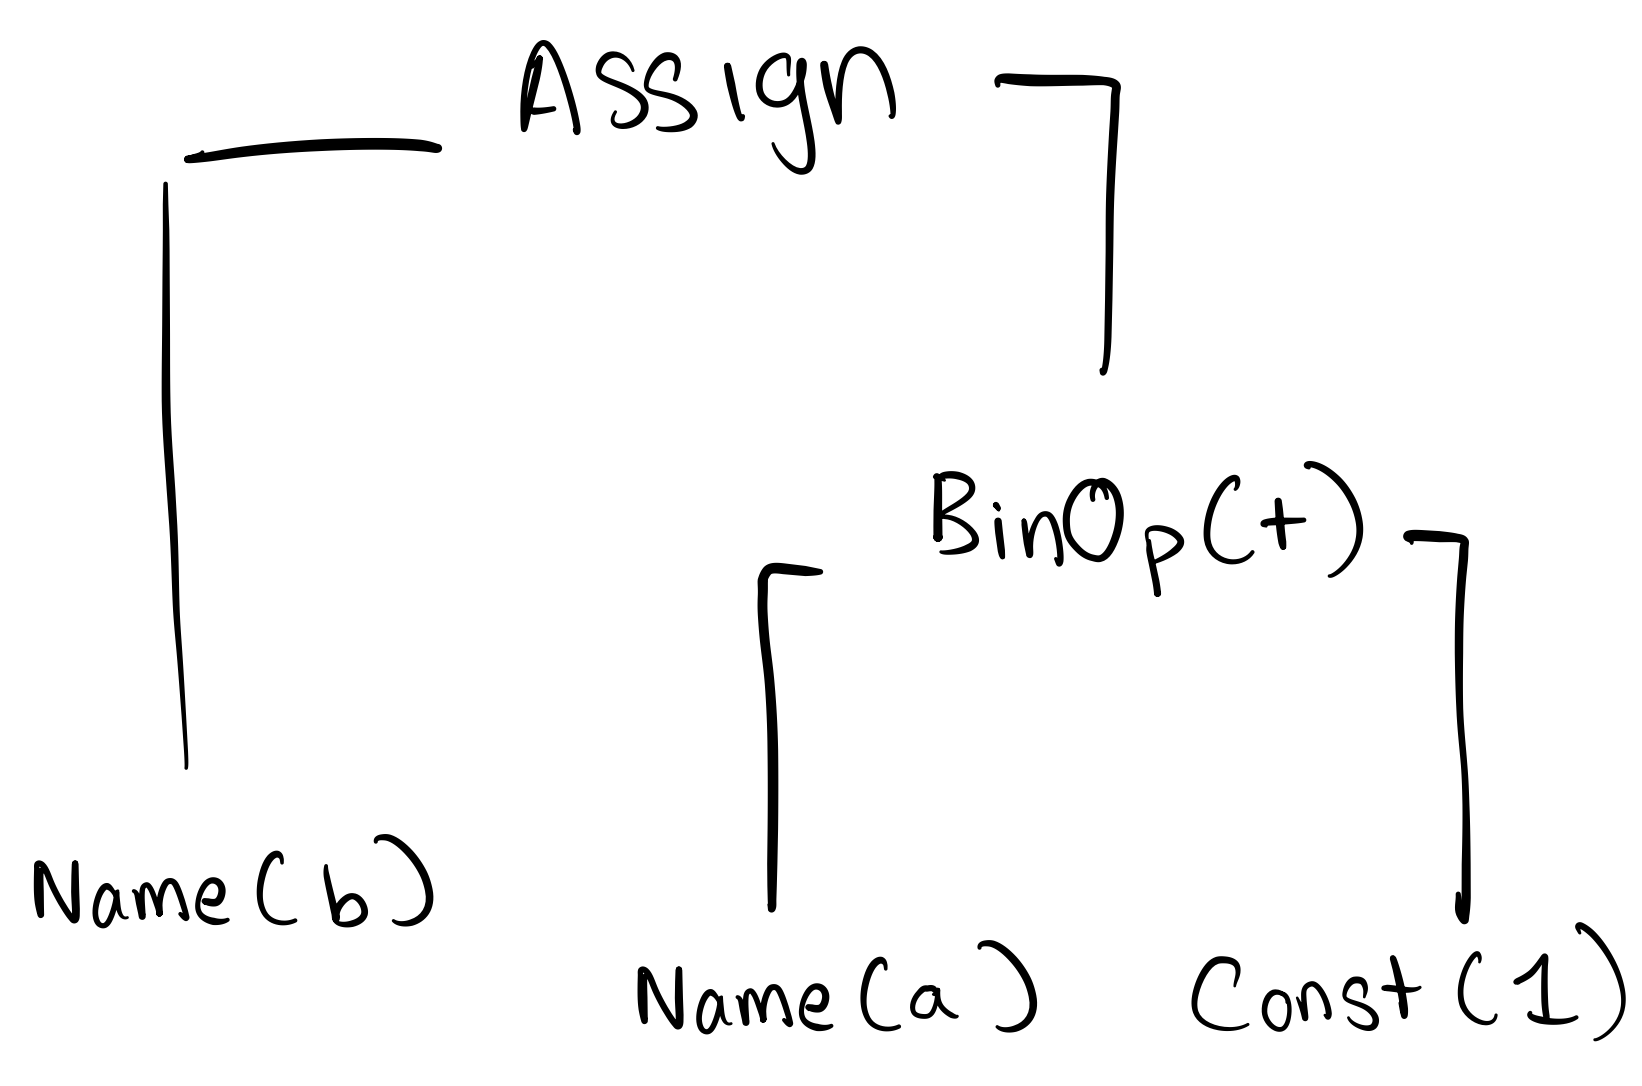 Assign
BinOp(+)
Name(b)
Name(a) Const(1)